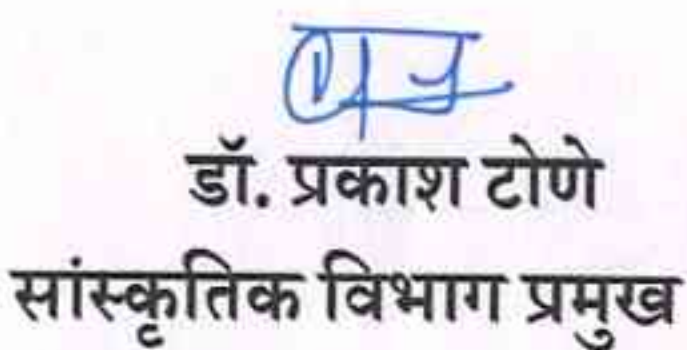 डॉ. प्रकाश टोणे
सांस्कृतिक विभाग प्रमुख